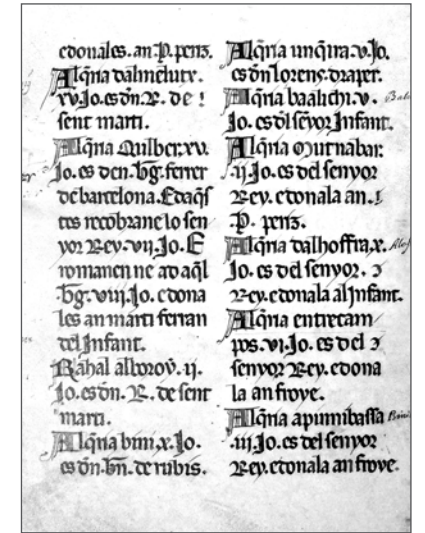 edonales. an .P. peris.
Alq̄ria dalmelutx.
xv. Jo. es dn̄ .R. de
sent marti.
Alq̄ria Quilber. xv.
Jo. es den .bg̃. ferrer
de barcelona. E daq̄ſ
tes recobrane lo sen
yor Rey .vij. Jo. E
romanen ne ad aq̄l
.bg̃. viij. Jo. e dona
les an marti ferran
del Infant.
Rahal alborov̄. ij.
Jo. es dn̄ .R. de sent
marti.
Alq̄ria bini. x. Jo.
es dn̄ .bn̄. de rubis.
Alq̄ria unq̄ira. v. Jo.
es dn̄ lorens. draper.
Alq̄ria baalichi. v.
Jo. es dl̄ senyor Infant.
Alq̄ria Mutnabar.
.ij. Jo. es del senyor
Rey. e dona la an
.P. peris.
Alq̄ria dalhoffra. x.
Jo. es del senyor.
Rey. e dona la al Infant.
Alq̄ria entrecam
pos. vi. Jo. es del
senyor Rey. e dona
la an froye.
Alq̄ria apunibassa
.iij. Jo. es del senyor
Rey. e dona la an froye.